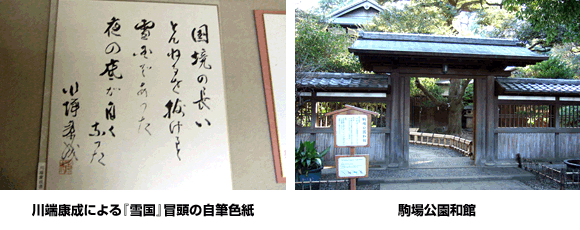 国境の長い
とんねるを抜けると
雪国であった
夜の底が白くなった
川端康成
川端康成による『雪国』冒頭の自筆色紙
駒場公園和館